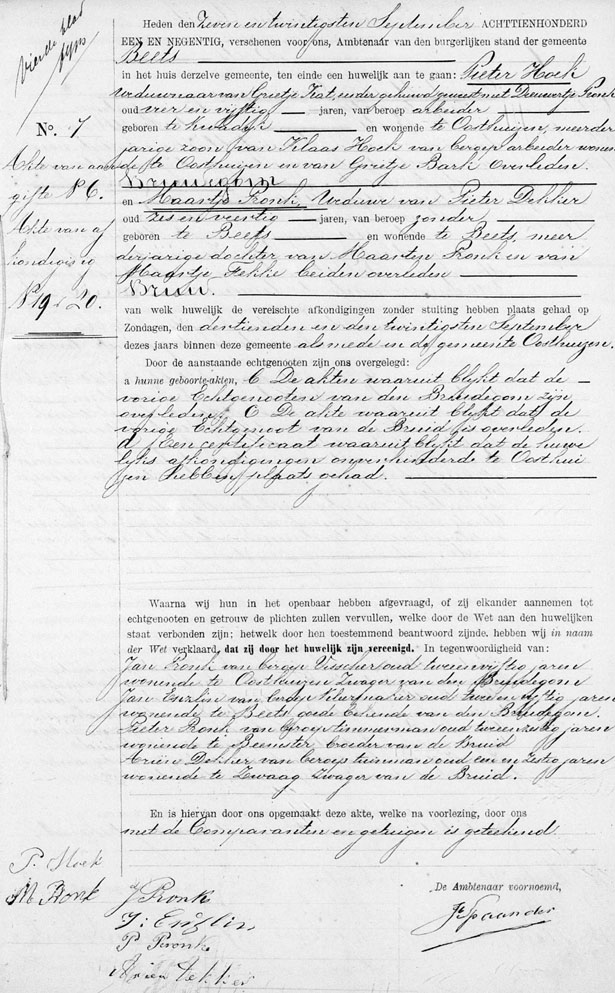 Vierde blad
No. 7
Akte van aan
gifte No 6.
Akte van af
kondiging
No 19 & 20.
Heden den Zeven en twintigsten September ACHTTIENHONDERD
EEN EN NEGENTIG, verschenen voor ons, Ambtenaar van den burgerlijken stand der gemeente
Beets
in het huis derzelve gemeente, ten einde een huwelijk aan te gaan: Pieter Hoek
Weduwnaar van Grietje Kat, eerder gehuwd geweest met Dieuwertje Pronk
oud vier en vijftig jaren, van beroep arbeider
geboren te Kwadijk en wonende te Oosthuizen, meerder
jarige zoon van Klaas Hoek van beroep arbeider wonen
de te Oosthuizen en van Grietje Bark overleden.
Bruidegom
en Maartje Pronk, Weduwe van Pieter Dekker
oud zes en veertig jaren, van beroep zonder
geboren te Beets en wonende te Beets, meer
derjarige dochter van Maarten Pronk en van
Maartje Fekke beiden overleden
Bruid.
van welk huwelijk de vereischte afkondigingen zonder stuiting hebben plaats gehad op
Zondagen, den dertienden en den twintigsten September
dezes jaars binnen deze gemeente alsmede in de gemeente Oosthuizen.
Door de aanstaande echtgenooten zijn ons overgelegd:
a hunne geboorte-akten, b De akten waaruit blijkt dat de
vorige Echtgenooten van den Bruidegom zijn
overleden. c De akte waaruit blijkt dat de
vorige Echtgenoot van de Bruid is overleden.
d Een certificaat waaruit blijkt dat de huwe
lijks afkondigingen onverhinderde te Oosthui
zen hebben plaats gehad.
Waarna wij hun in het openbaar hebben afgevraagd, of zij elkander aannemen tot
echtgenooten en getrouw de plichten zullen vervullen, welke door de Wet aan den huwelijken
staat verbonden zijn; hetwelk door hen toestemmend beantwoord zijnde, hebben wij in naam
der Wet verklaard, dat zij door het huwelijk zijn vereenigd. In tegenwoordigheid van:
Jan Pronk van beroep Visscher oud twee en vijftig jaren
wonende te Oosthuizen Zwager van den Bruidegom
Jan Enzlin van beroep oud twee en vijftig jaren
wonende te Beets goede bekende van den Bruidegom.
Pieter Pronk van beroep timmerman oud twee en zestig jaren
wonende te Beemster broeder van de Bruid
Arien Dekker van beroep tuinman oud een en zestig jaren
wonende te Zwaag Zwager van de Bruid.
En is hiervan door ons opgemaakt deze akte, welke na voorlezing, door ons
met de Comparanten en getuigen is geteekend
P. Hoek
M Pronk
J Pronk
J. Enzlin
P. Pronk
Arien Dekker
De Ambtenaar voornoemd,
Spaander